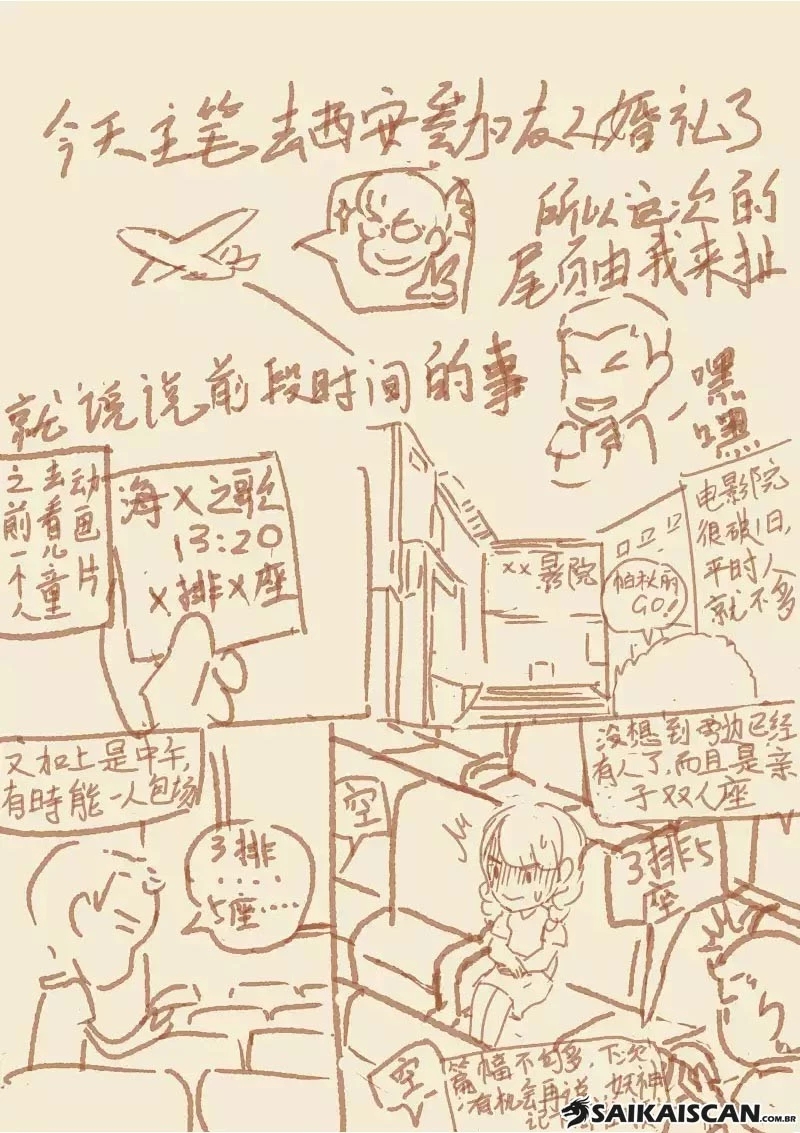 今天主笔去西安参加友人婚礼了
所以这次的
尾页由我来扯
就说说前段时间的事
嘿
嘿
之前一个人
去看儿童
动画片
海X之歌
13:20
X排X座
XX影院
帕秋丽
GO!
电影院
很破旧,
平时人
就不多
又加上是中午,
有時能一人包场
3排
....
5座……
没想到两边已经
有人了,而且是亲
子双人座
空
3排5
座
空
篇幅不够多,下次
有机会再说,妖神
记
SAIKAISCAN.COM.BR